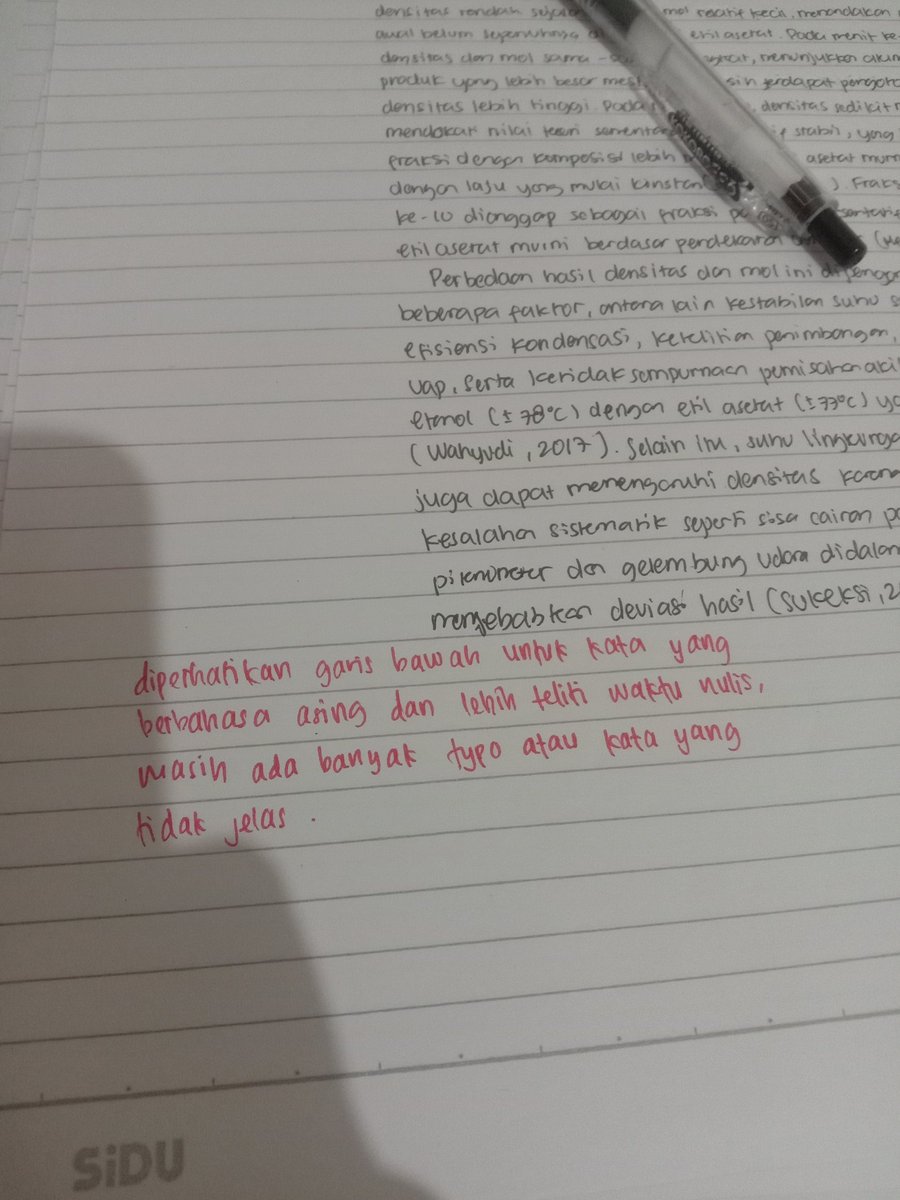 densitas rendah mol relatif kecil, menandakan
awal belum sepenuhnya etil aserat. Pada menit ke
densitas dan mol sama - menunjukkan akum
produk yang lebih besar terdapat pengoto
densitas lebih tinggi. Pada densitas sedikit
mendekati nilai teori stabil, yang
fraksi dengan komposisi lebih asetat murn
dengan laju yang mulai konstan ). Fraks
ke-10 dianggap sebagai fraksi
etil asetat murni berdasar pendekatan
Perbedaan hasil densitas dan mol ini
beberapa faktor, antara lain kestabilan suhu s
efisiensi kondensasi, ketelitian penimbangan,
uap, serta ketidaksempurnaan pemisahan
etanol (± 78°C) dengan etil asetat (± 77°C) ya
(Wahyudi, 2017). Selain itu, suhu lingkunga
juga dapat memengaruhi densitas karena
kesalahan sistematik seperti sisa cairan pa
piknometer dan gelembung udara didalam
menyebabkan deviasi hasil (Sukeksi, 2
diperhatikan garis bawah untuk kata yang
berbahasa asing dan lebih teliti waktu nulis,
masih ada banyak typo atau kata yang
tidak jelas.
SiDU